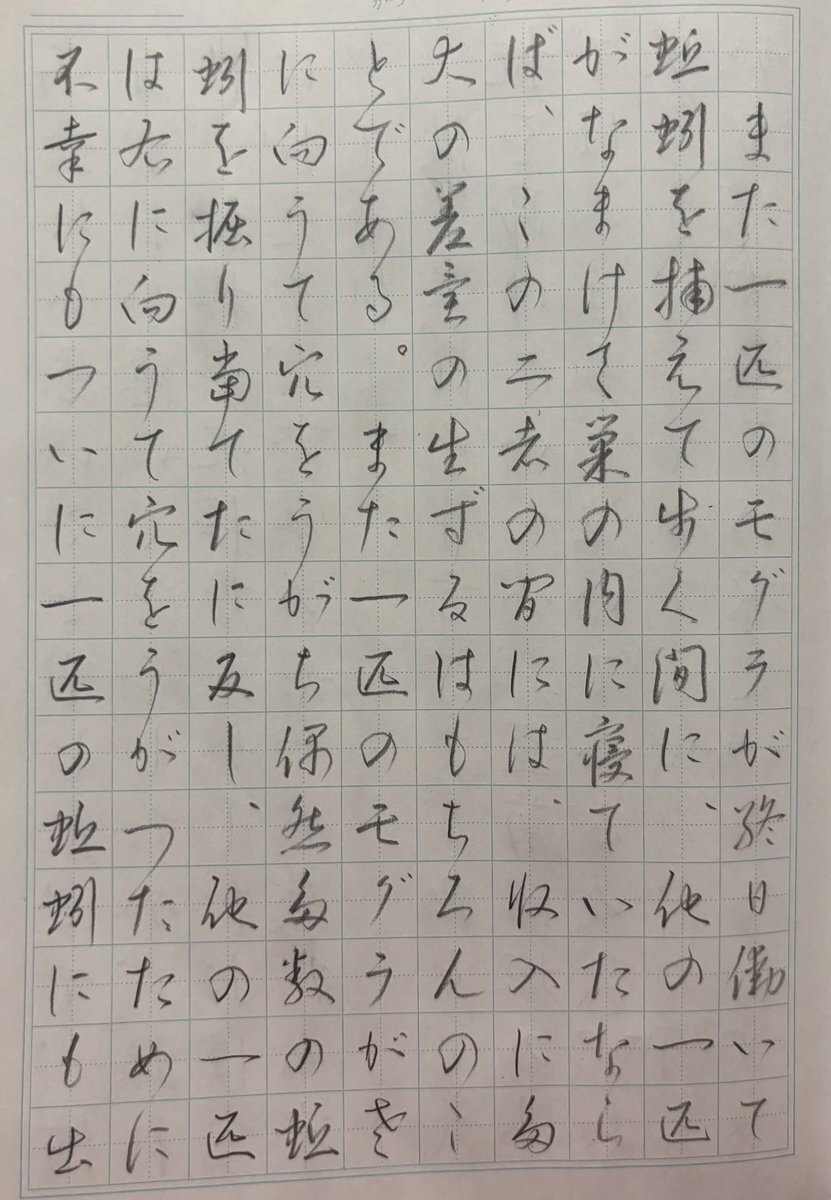 また一匹のモグラが終日働いて
蚯蚓を捕えて歩く間に、他の一匹
がなまけて巣の内に寝ていたなら
ば、この二者の間には、収入に多
大の差異の生ずるはもちろんのこ
とである。また一匹のモグラが左
に向うて穴をうがち偶然多数の蚯
蚓を掘り当てたに反し、他の一匹
は右に向うて穴をうがつたために
不幸にもついに一匹の蚯蚓にも出